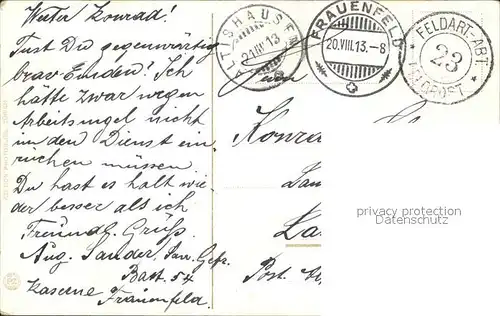 Werter Konrad!
Tust Du gegenwärtig
brav Emden! Ich
hätte zwar wegen
Arbeitsmangel nicht
in den Dienst ein
rücken müssen
Du hast es halt wie
der besser als ich
Freundl. Grüß
Aug. Sander, San. Gefr.
Batt. 54
Kaserne
Frauenfeld
ALTISHAUSEN
21.VIII.13
FRAUENFELD
20.VIII.13.-8
FELDART-ABT.
23
FELDPOST
Konrad
Post
privacy protection
watermark